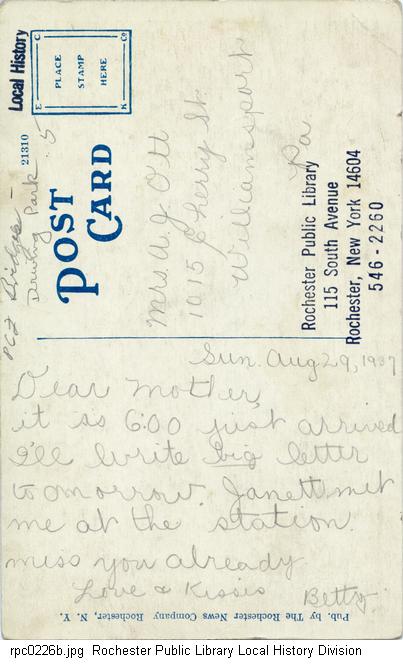 Local History
E C
C Co
K
PLACE
STAMP
HERE
21310
PCZ Bridges -
Driving Park .5
POST
CARD
Mrs A. J Ott
1015 Cherry St.
Williamsport
Pa.
Rochester Public Library
115 South Avenue
Rochester, New York 14604
546-2260
Sun. Aug 29, 1937
Dear Mother,
it is 6:00 just arrived
I'll write big letter
tomorrow. Janett met
me at the station.
miss you already
Love & Kisses
Betty
Pub. by The Rochester News Company Rochester, N. Y.
rpc0226b.jpg Rochester Public Library Local History Division